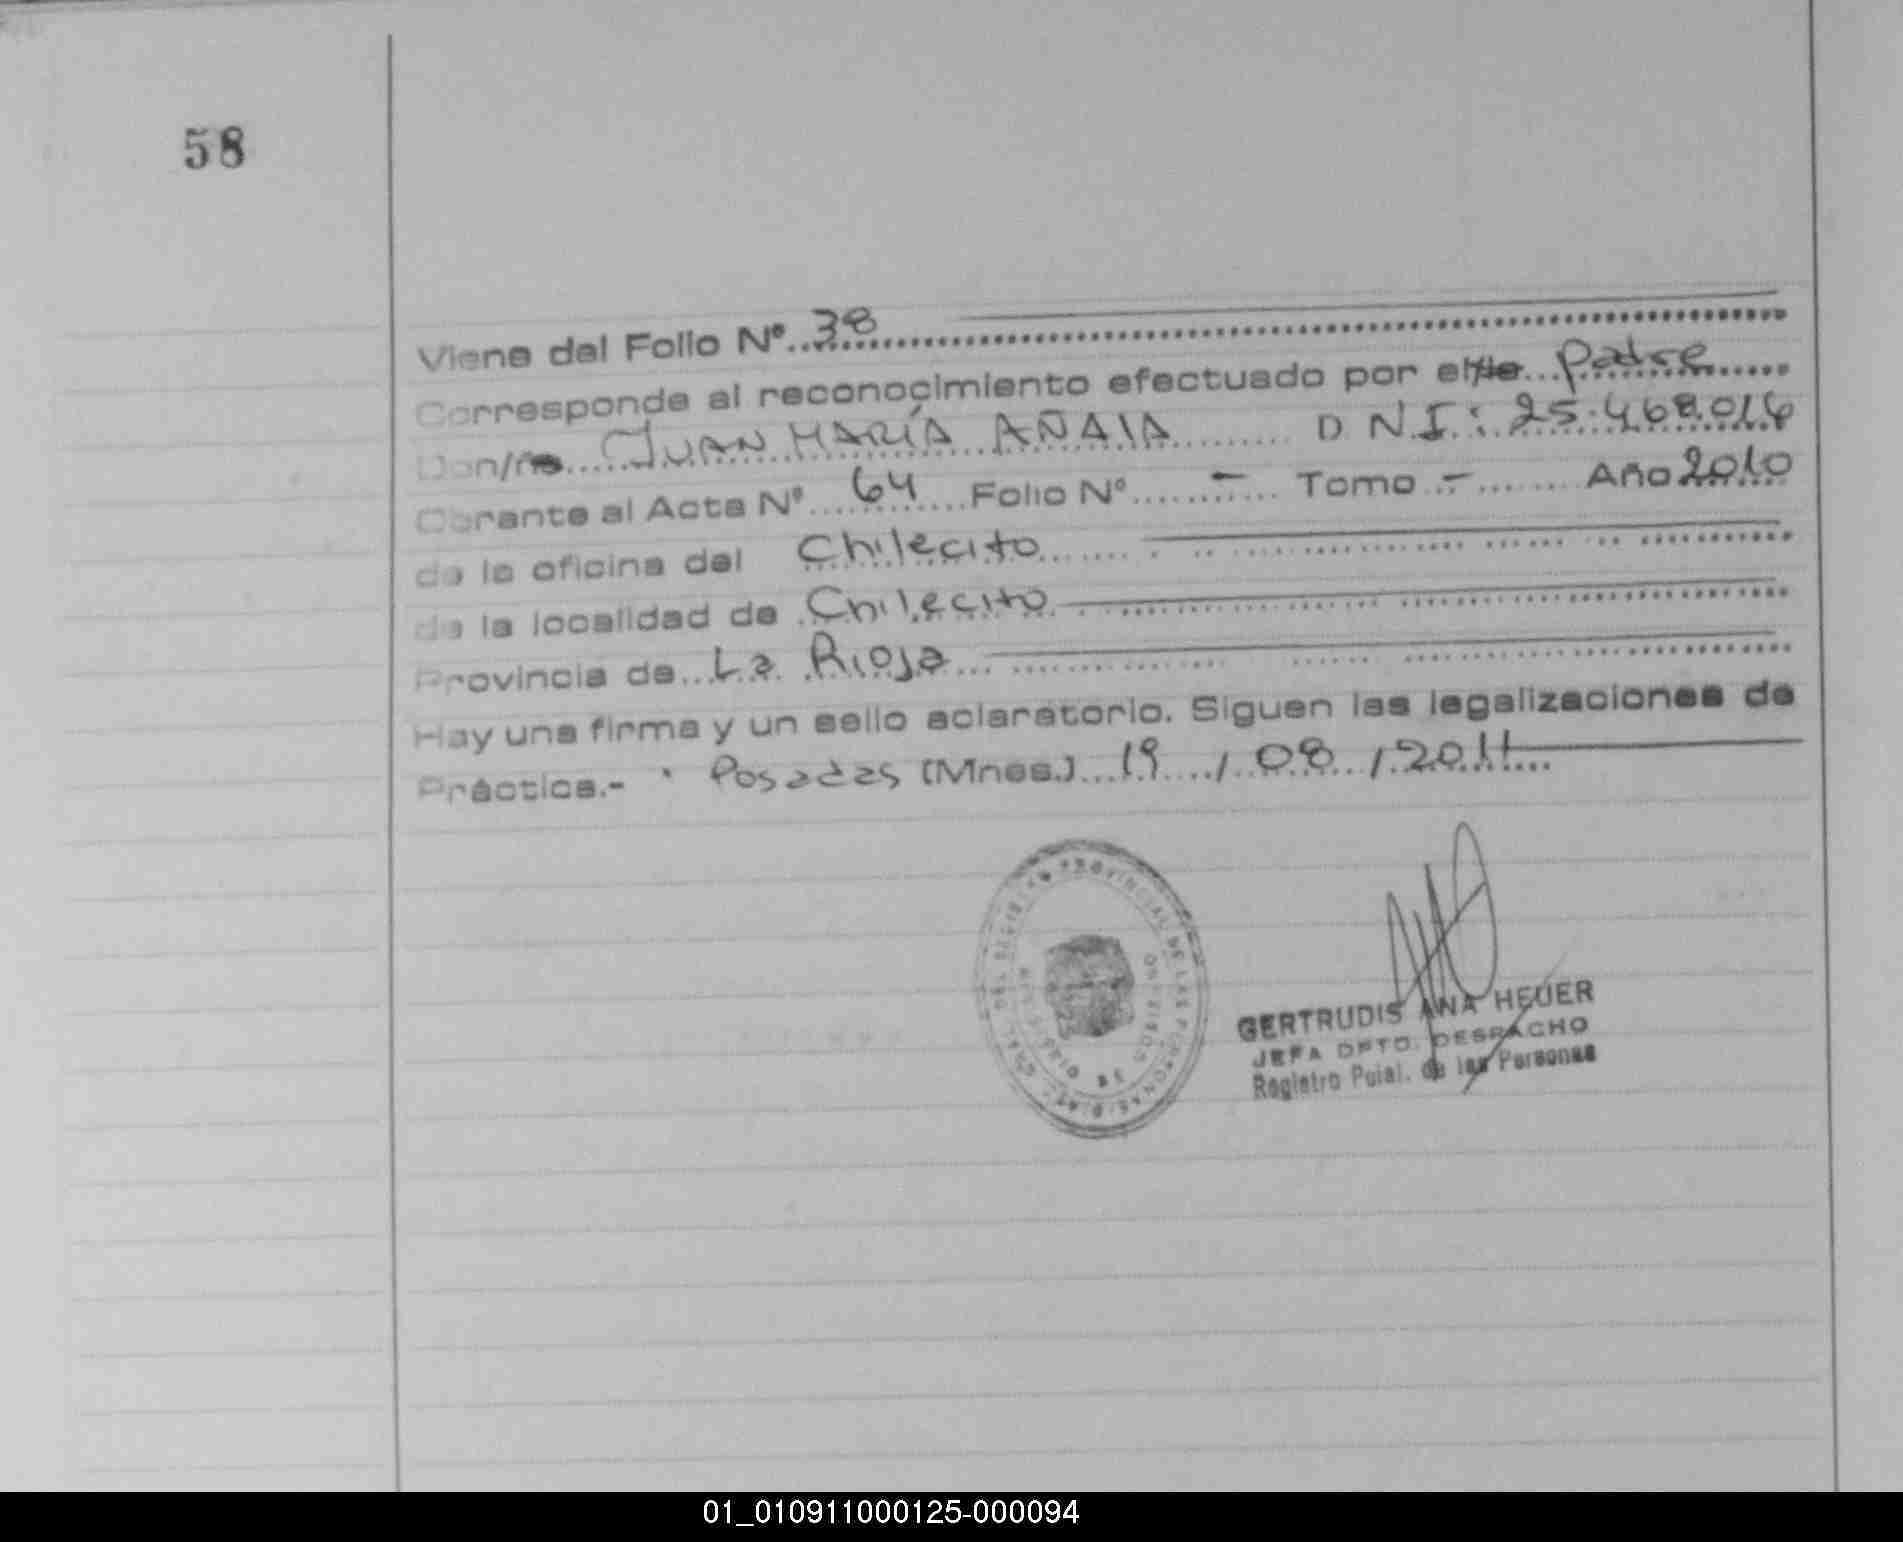 58
Viene del Folio Nº...38
Corresponde al reconocimiento efectuado por el/la... Padre
Don/ña... JUAN MARÍA AÑAIA D.N.I.: 25.468.016
Obrante al Acta Nº 64 Folio Nº - Tomo - Año 2010
de la oficina del Chilecito
de la localidad de Chilecito
Provincia de La Rioja
Hay una firma y un sello aclaratorio. Siguen las legalizaciones de
Práctica.- Posadas (Mnes.) 19 / 08 / 2011
PROVINCIAL DE LAS PERSONAS
GERTRUDIS ANA HEUER
JEFA DPTO. DESPACHO
Registro Pcial. de las Personas
01_010911000125-000094